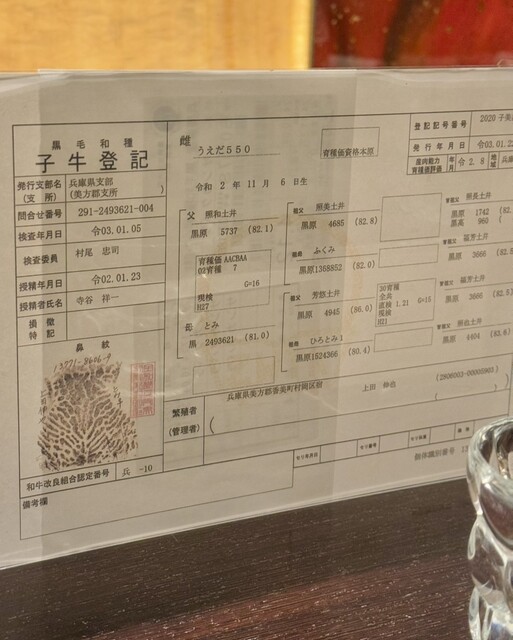 黒毛和種
子牛登記
発行支部名
(支所)
兵庫県支部
(美方郡支所
)
問合せ番号
291-2493621-004
検査年月日
令03.01.05
検査委員
村尾 忠司
授精年月日
令02.01.23
授精者氏名
寺谷 祥一
損徴
特記
鼻紋
13771-8606-9
和牛改良組合認定番号
兵 -10
備考欄
雌
うえだ550
育種価資格本原
令和 2年 11月 6日生
父 照和土井
黒原 5737 (82.1)
育種価 AACBAA
02育種 7
G=16
現検
H27
母 とみ
黒 2493621 (81.0)
祖父 照美土井
黒原 4685 (82.8)
祖母 ふくみ
黒原1368852 (82.0)
祖父 芳悠土井
黒原 4945 (86.0)
祖母 ひろとみ1
黒原1524366 (80.4)
30育種
全兵
直検 1.21 G=15
現検
H21
登記記号番号
2020 子美
発行年月日
令03.01.22
産肉能力
育種価評価
年月
令 2.8
地域
兵庫
照長土井
黒原 1742
黒高 960
菊芳土井
黒原 3666
菊芳土井
黒原 3666
照也土井
黒原 4404
繁殖者
(管理者)
兵庫県美方郡香美町村岡区
上田 伸也
(2806003-00005903)
セリ年月日
セリ番号
個体識別番号